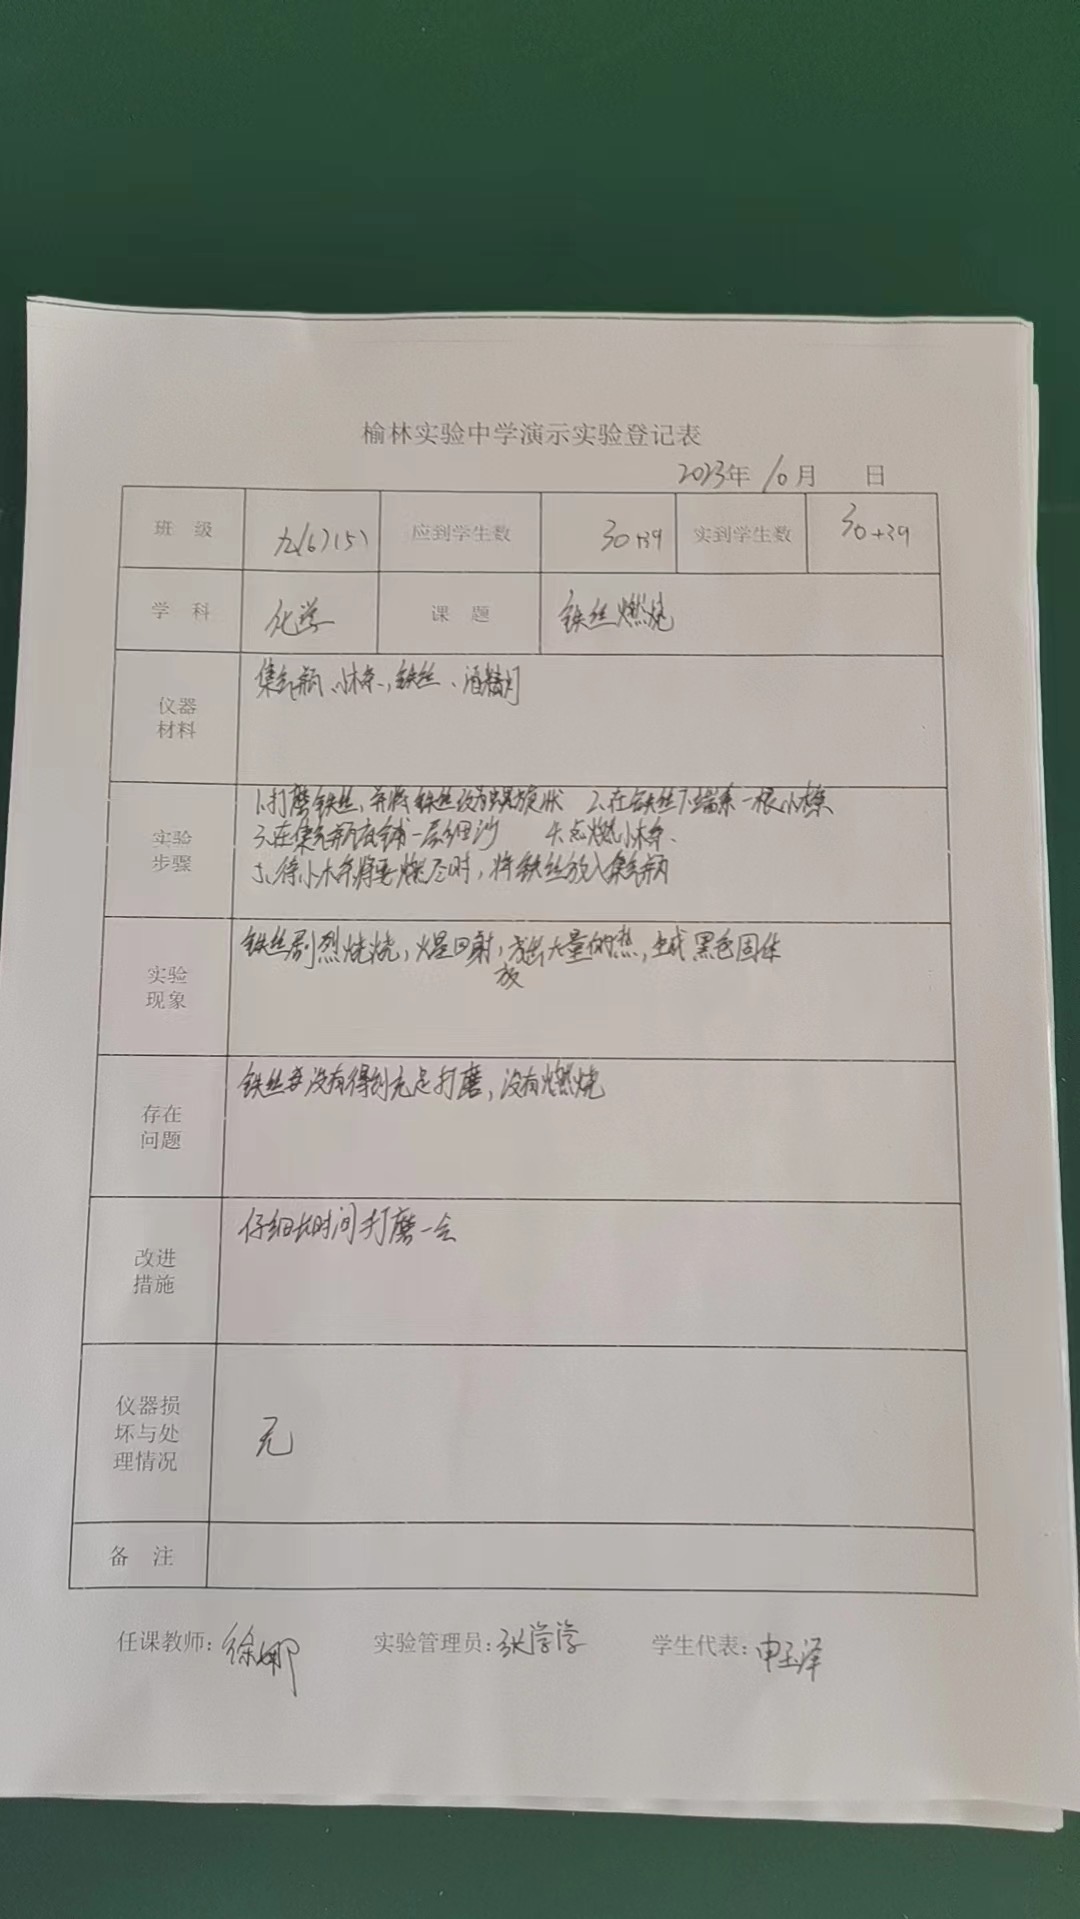 榆林实验中学演示实验登记表
2023年 10月 日
班 级 九(6)(5) 应到学生数 30+39 实到学生数 30+39
学 科 化学 课 题 铁丝燃烧
仪器
材料
集气瓶、小木条、铁丝、酒精灯
实验
步骤
1.打磨铁丝,并将铁丝设为螺旋状 2.在铁丝下端系一根小木条
3.在集气瓶底铺一层细沙 4.点燃小木条.
5.待小木条将要燃尽时,将铁丝放入集气瓶
实验
现象
铁丝剧烈烧烧,火星四射,放出大量的热,生成黑色固体
放
存在
问题
铁丝并没有得到充足打磨,没有燃烧
改进
措施
仔细长时间打磨一会
仪器损
坏与处
理情况
无
备 注
任课教师: 徐娜 实验管理员: 张学学 学生代表: 申玉泽